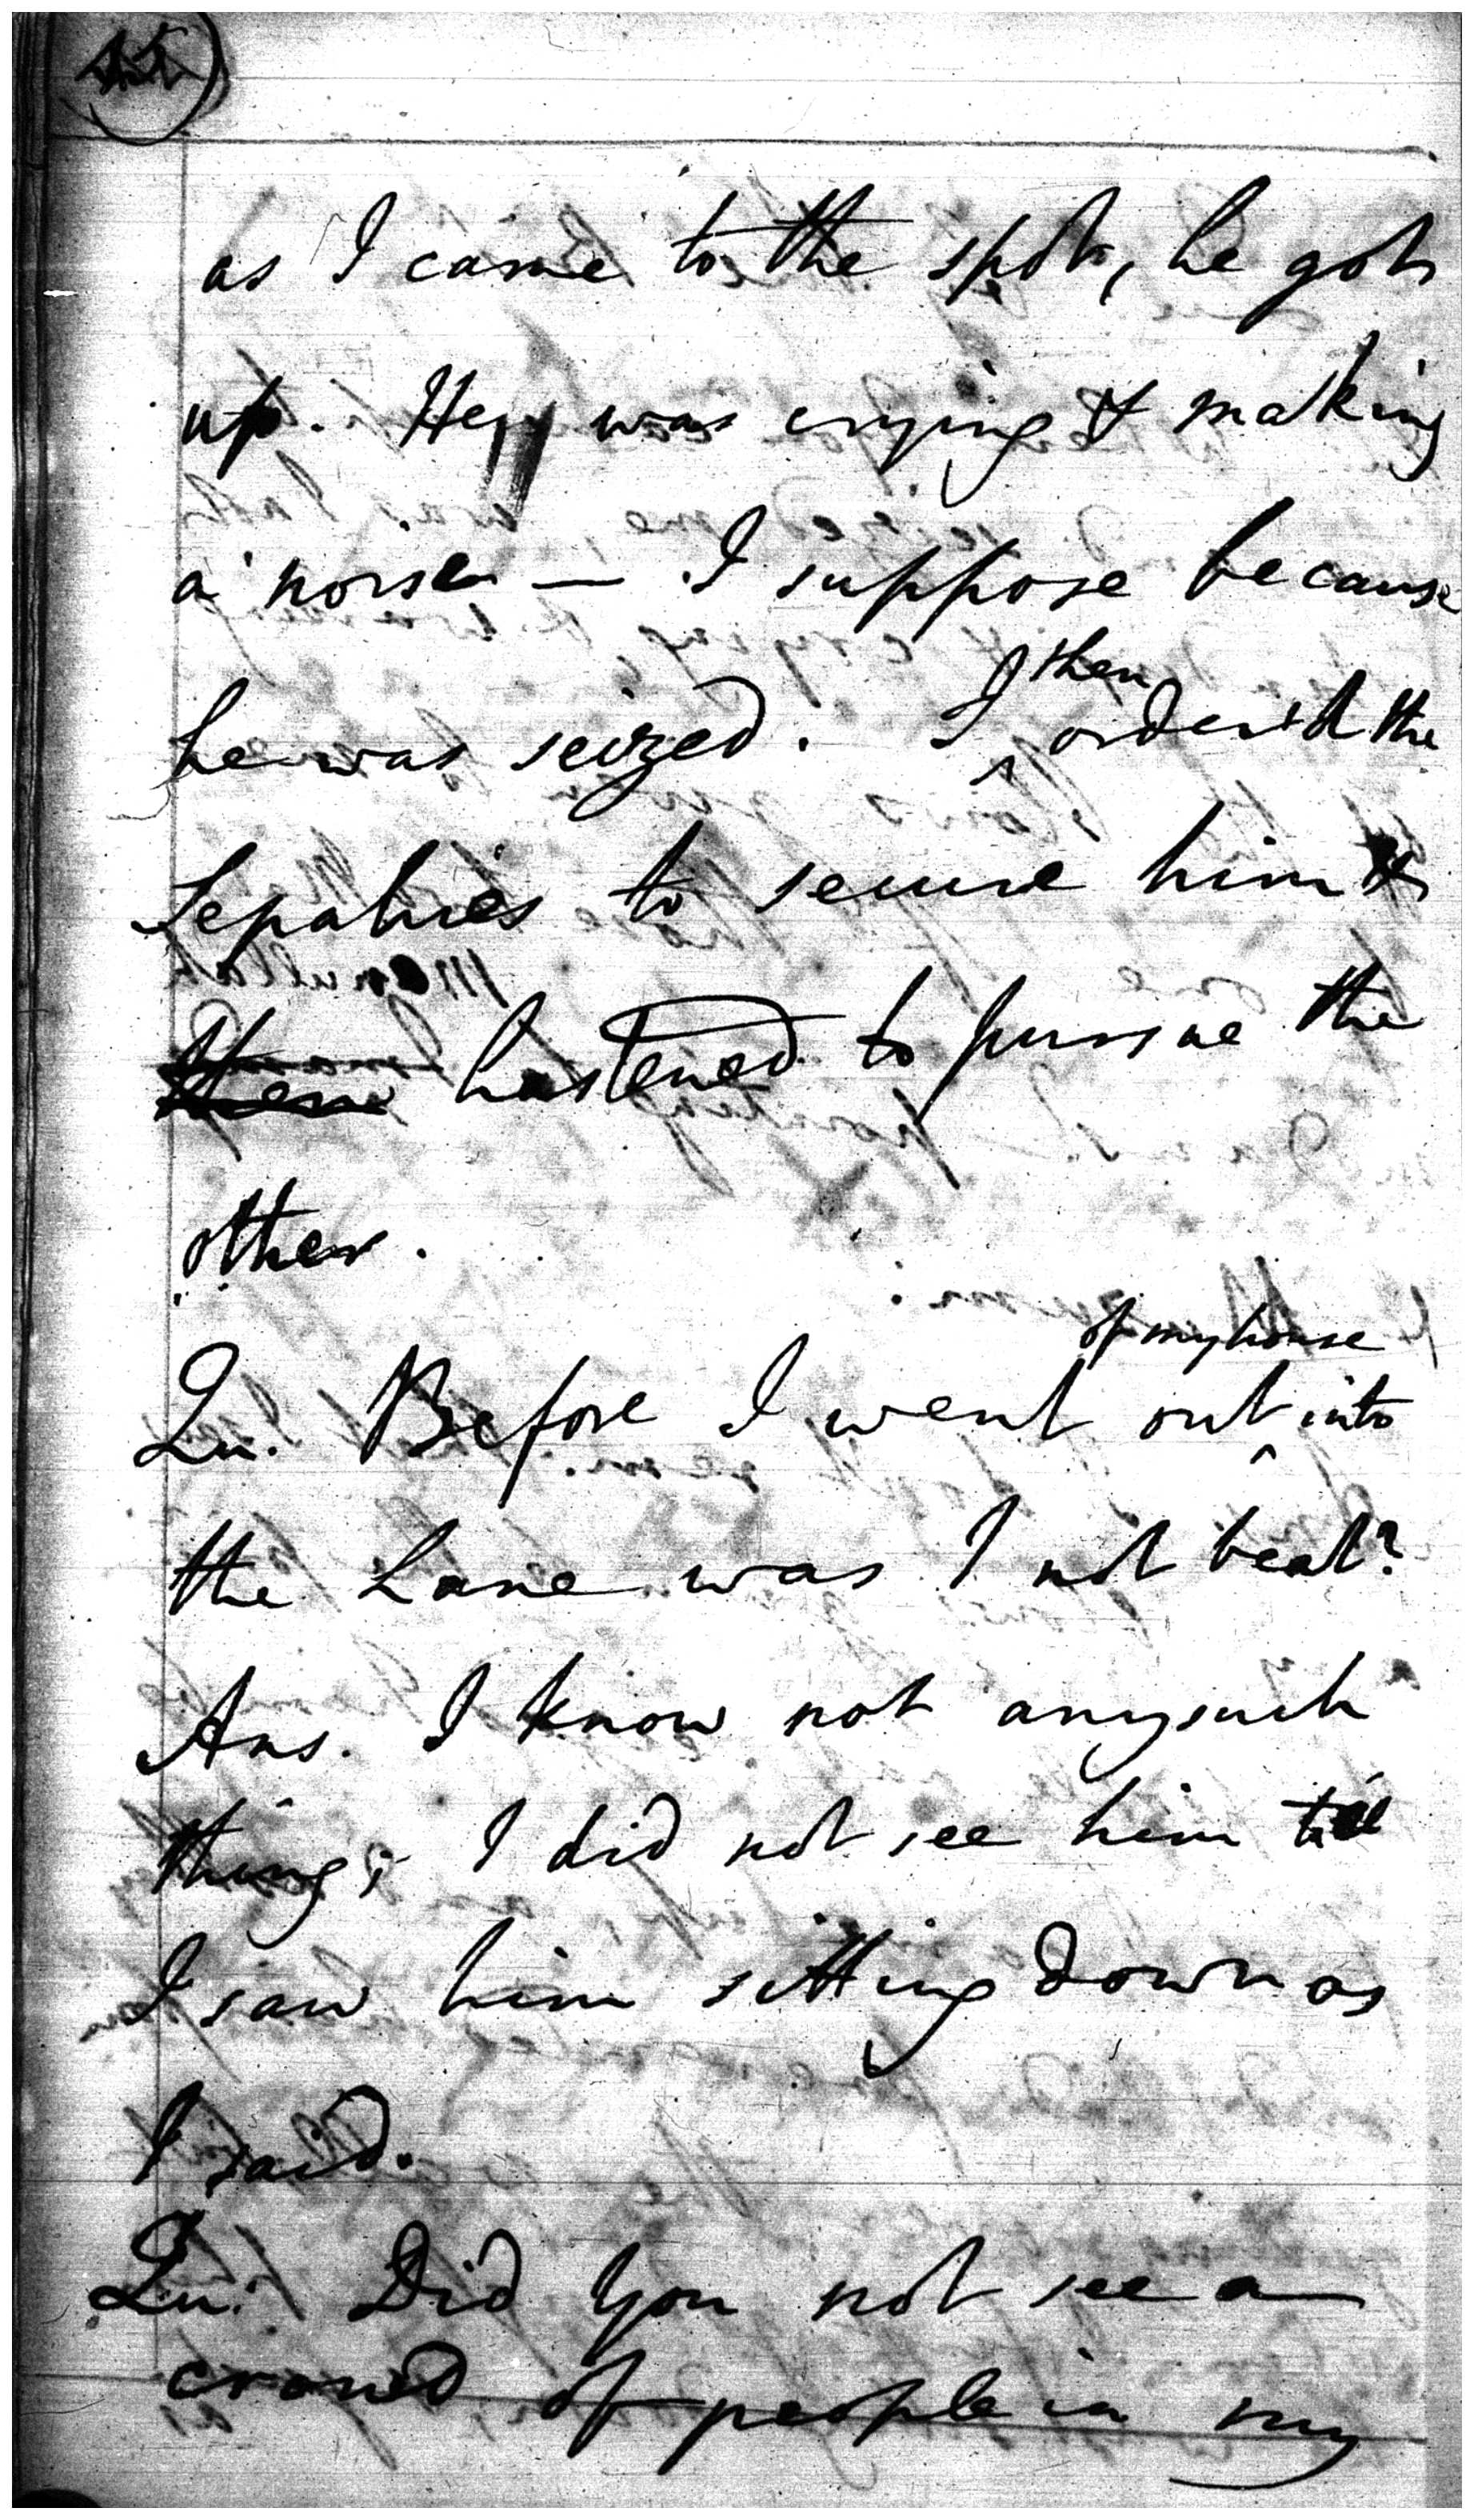 as I came to the spot, he got
up. He was crying & making
a noise — I suppose because
he was seized. I then ordered the
Sepahies to secure him &
then hastened to pursue the
other.
Qu. Before I went out of my house into
the Lane was I not beat?
Ans. I know not any such
thing; I did not see him till
I saw him sitting down as
I said.
Qu. Did you not see a
crowd of people in my